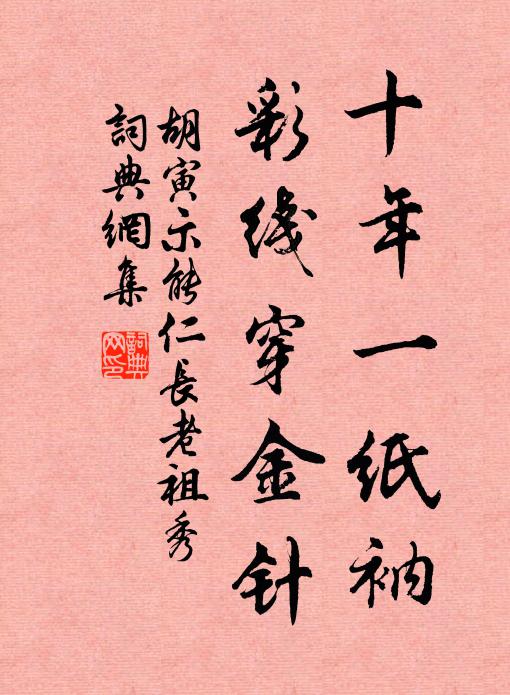 十年一纸衲
彩线穿金针
胡寅示能仁長老祖秀
詞典網集
詞典網印